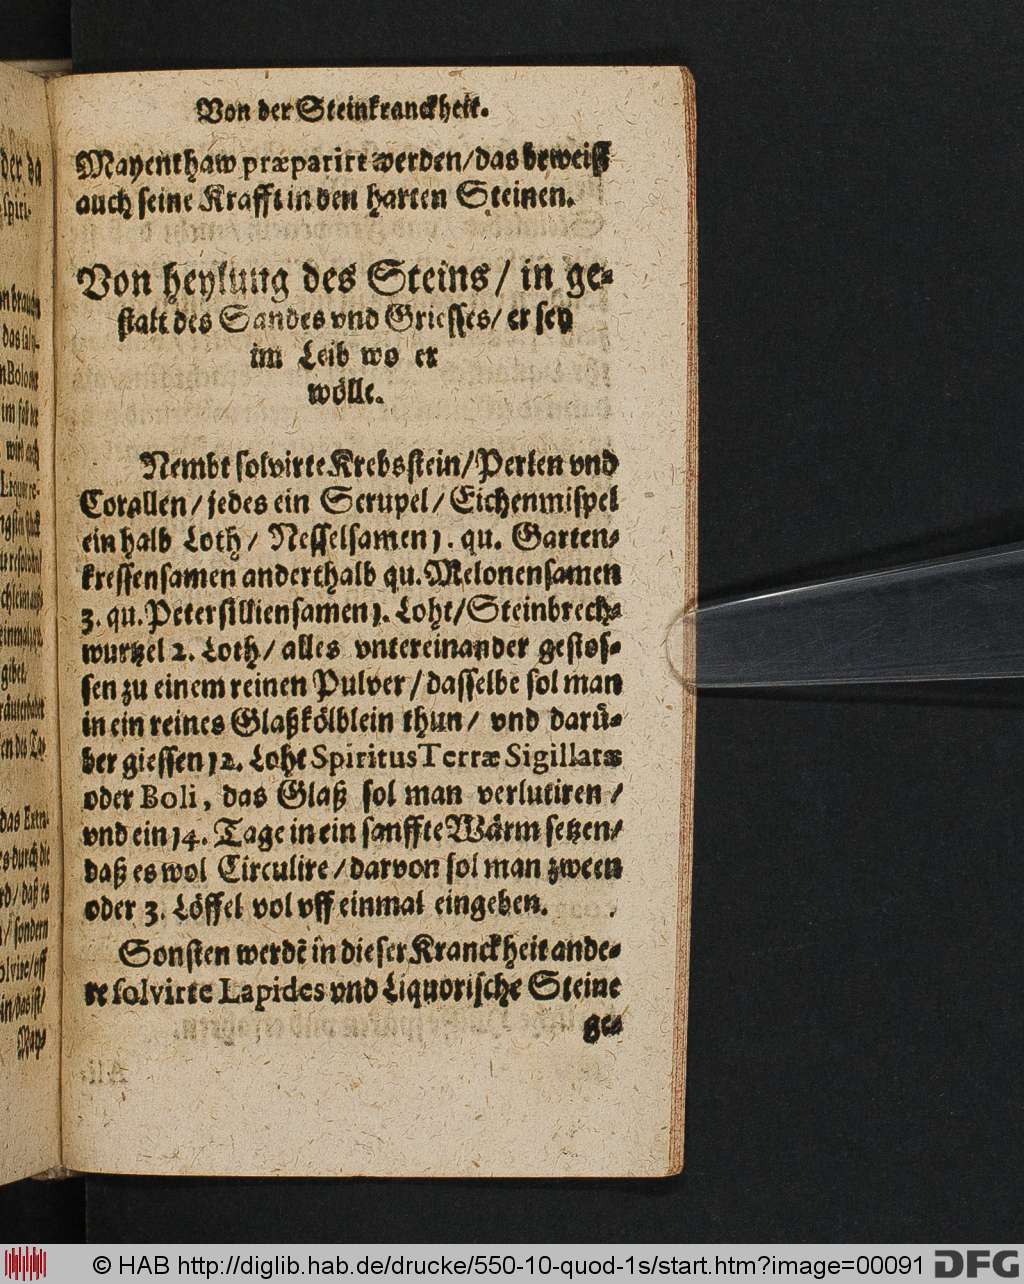 Von der Steinkranckheit.
Mayenthaw præparirt werden/das beweist
auch seine Krafft in den harten Steinen.
Von heylung des Steins / in ge-
stalt des Sandes vnd Griesses/ er sey
im Leib wo er
wölle.
Nembt solvirte Krebsstein/Perlen vnd
Corallen/ jedes ein Scrupel/ Eichenmispel
ein halb Loth/ Nesselsamen 1. qu. Garten-
kressensamen anderthalb qu. Melonensamen
3. qu. Petersilliensamen 1. Loht/Steinbrech-
wurtzel 2. Loth/ alles vntereinander gestos-
sen zu einem reinen Pulver/ dasselbe sol man
in ein reines Glaßkölblein thun/ vnd darü-
ber giessen 12. Loht Spiritus Terræ Sigillatæ
oder Boli, das Glaß sol man verlutiren /
vnd ein 14. Tage in ein sanffte Wärm setzen/
daß es wol Circulire/ darvon sol man zween
oder 3. Löffel vol vff einmal eingeben.
Sonsten werdē in dieser Kranckheit ande-
re solvirte Lapides vnd Liquorische Steine
ge-
der da
spiri-
brauch
Bolone
im fall
wirt auch
gibet.
das Extra-
es durch die
daß es
/ sondern
olvirt/ off
in/ das ist/
May-
© HAB http://diglib.hab.de/drucke/550-10-quod-1s/start.htm?image=00091
DFG